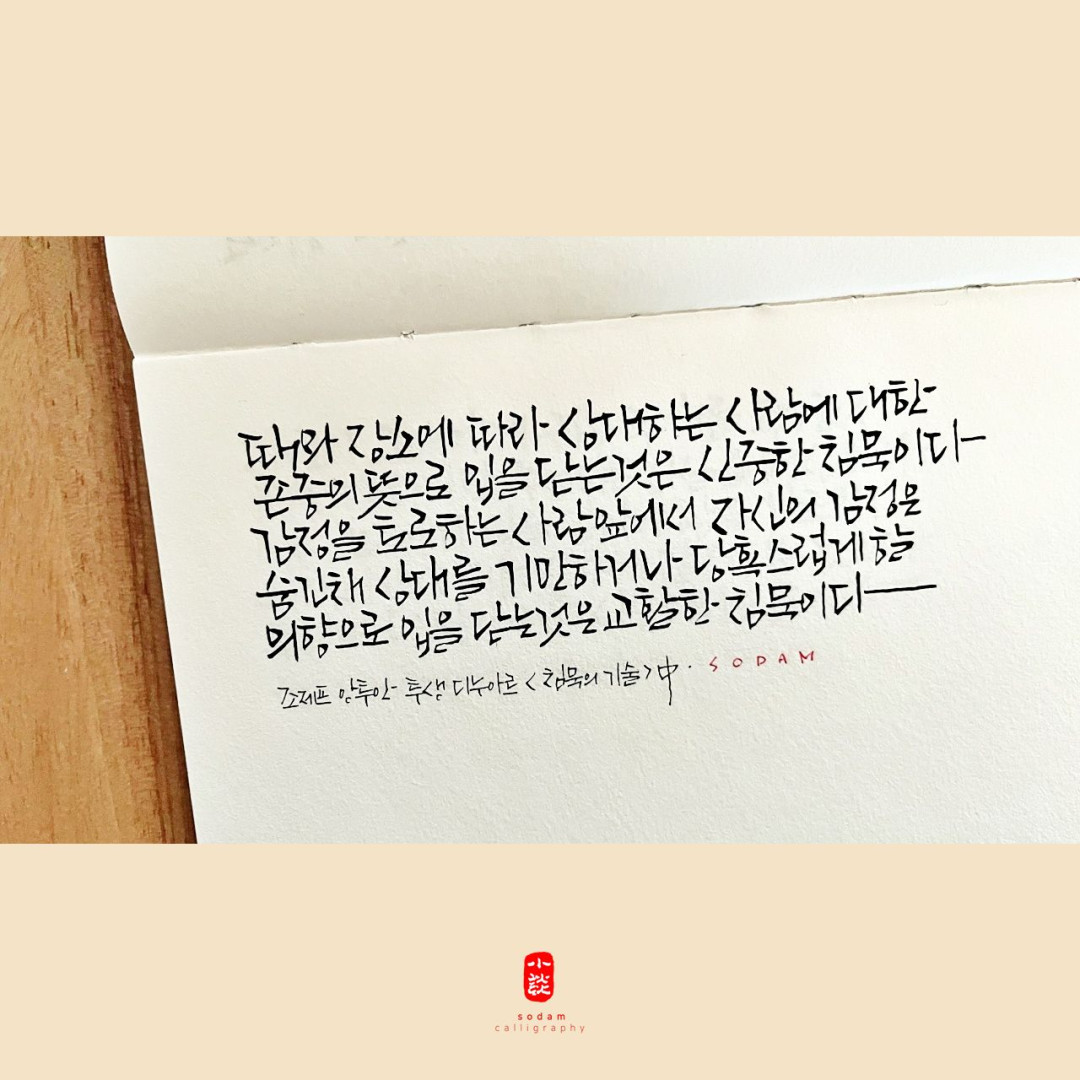 때와 장소에 따라 상대하는 사람에 대한
존중의 뜻으로 입을 닫는것은 신중한 침묵이다
감정을 토로하는 사람앞에서 자신의 감정은
숨긴채 상대를 기만하거나 당혹스럽게할
의향으로 입을 닫는것은 교활한 침묵이다
조제프 앙투안 투생 디누아르 <침묵의 기술> 中. SODAM
小談
sodam
calligraphy